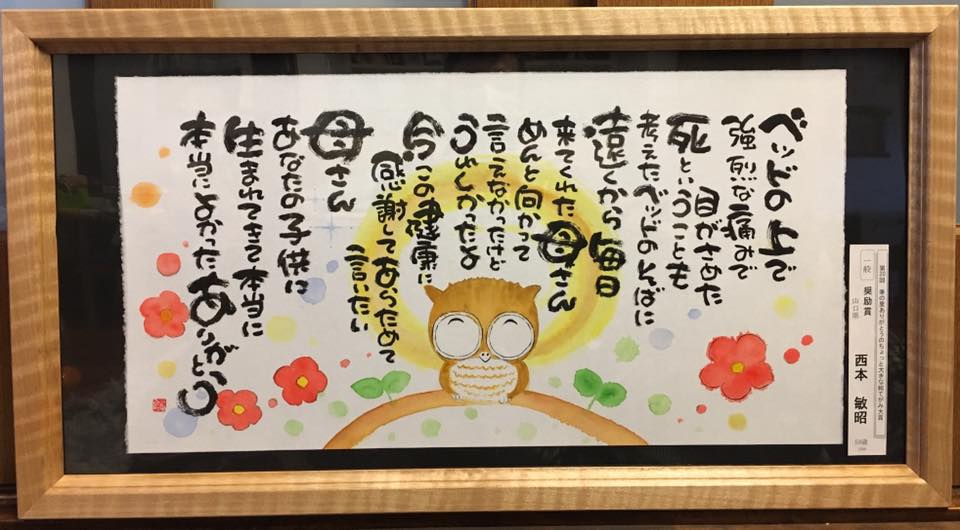 ベッドの上で
強烈な痛みで
目がさめた
死ということも
考えたベッドのそばに
遠くから毎日
来てくれた母さん
めんと向かって
言えなかったけど
うれしかったよ
今この健康に
感謝してあらためて
言いたい
母さん
あなたの子供に
生まれてきて本当に
本当によかったありがとう
第20回 季の里ありがとうのちょっと大きな絵てがみ大賞
一般 奨励賞
山口県
西本 敏昭